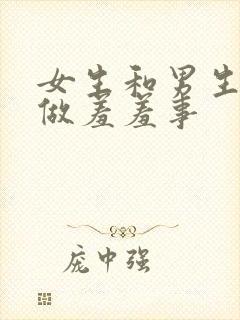 女生和男生
做羞羞事
庞中强